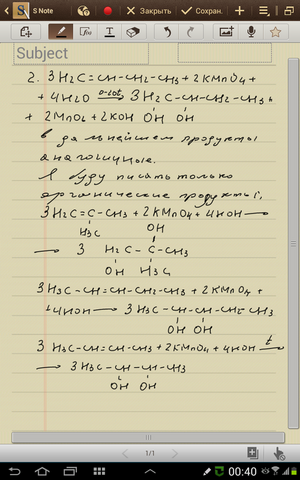 S Note
Закрыть
Сохран.
Subject
2. 3H₂C=CH-CH₂-CH₃ + 2KMnO₄ +
+ 4H₂O → 3H₂C-CH-CH₂-CH₃ +
OH OH
+ 2MnO₂ + 2KOH
в дальнейшем продукты
аналогичные.
Я буду писать только
органические продукты:
3H₂C=C-CH₃ + 2KMnO₄ + 4HOH →
H₃C
OH
→ 3 H₂C-C-CH₃
OH H₃C
3H₃C-CH=CH-CH₂-CH₃ + 2KMnO₄ +
+4HOH → 3H₃C-CH-CH-CH₂-CH₃
OH OH
3 H₃C-CH=CH-CH₃ + 2KMnO₄ + 4HOH t→
→ 3H₃C-CH-CH-CH₃
OH OH
1/1
00:40